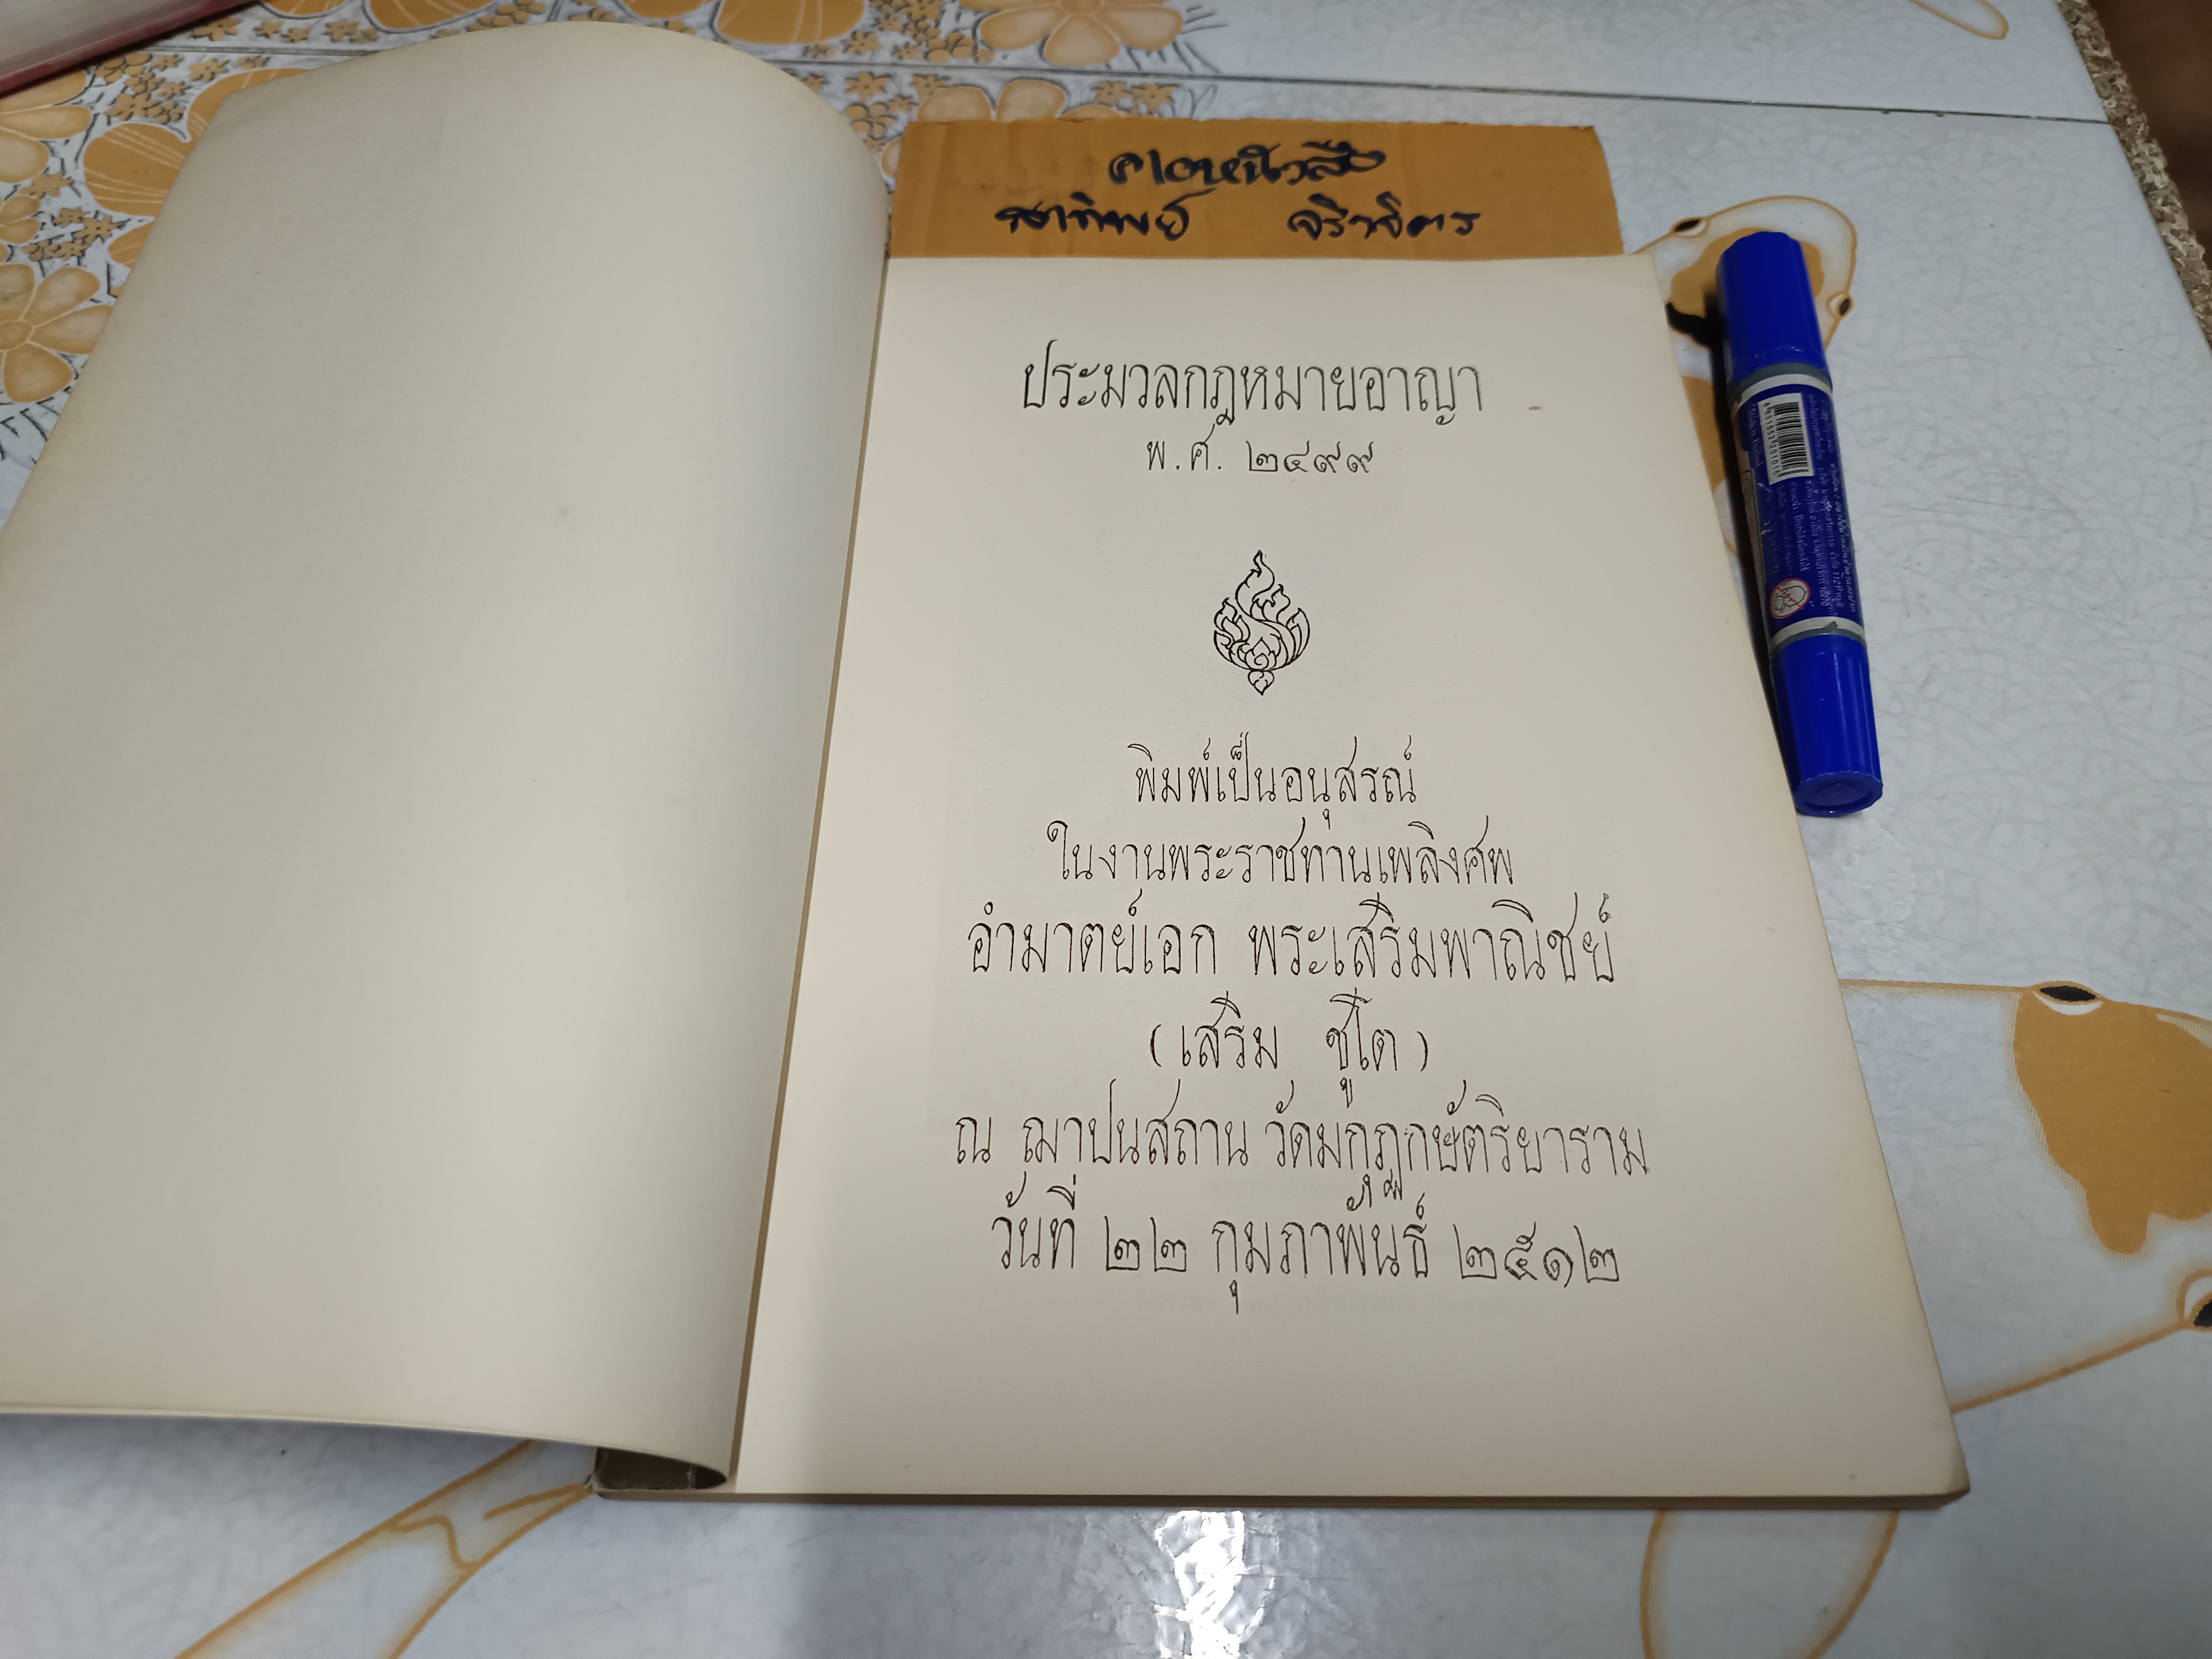 ประมวลกฎหมายอาญา
พ.ศ. ๒๔๙๙
พิมพ์เป็นอนุสรณ์
ในงานพระราชทานเพลิงศพ
อำมาตย์เอก พระเสริมพาณิชย์
(เสริม ชูโต)
ณ ฌาปนสถาน วัดมกุฏกษัตริยาราม
วันที่ ๒๒ กุมภาพันธ์ ๒๕๑๒